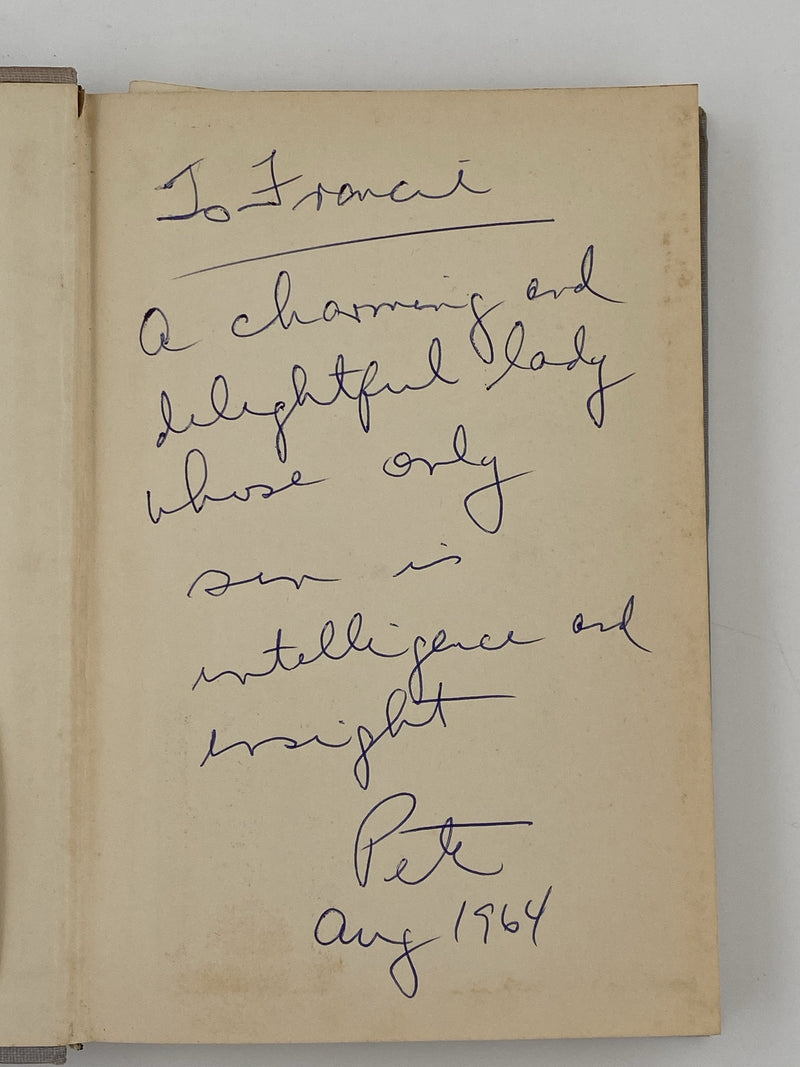 To Francie
A charming and
delightful lady
whose only
sin is
intelligence and
insight
Pete
Aug 1964